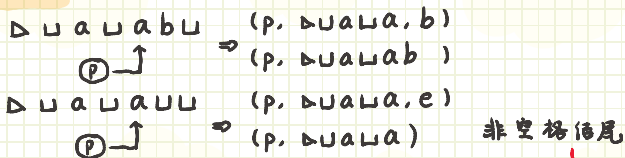 ▷ ⊔ a ⊔ a b ⊔ ⇒ (p, ▷⊔a⊔a, b)
ⓟ (p, ▷⊔a⊔ab)
▷ ⊔ a ⊔ a ⊔ ⊔ ⇒ (p, ▷⊔a⊔a, e)
ⓟ (p, ▷⊔a⊔a) 非空格结尾